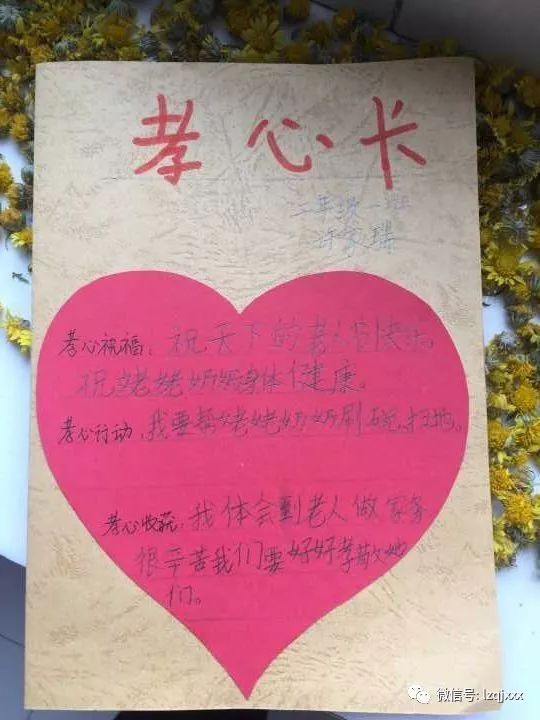 孝心卡
二年级一班
许家瑞
孝心祝福：祝天下的老人节快乐。
祝姥姥奶奶身体健康。
孝心行动，我要帮姥姥奶奶刷碗扫地。
孝心收获：我体会到老人做家务
很辛苦我们要好好孝敬她
们。
微信号: lzqjxxx